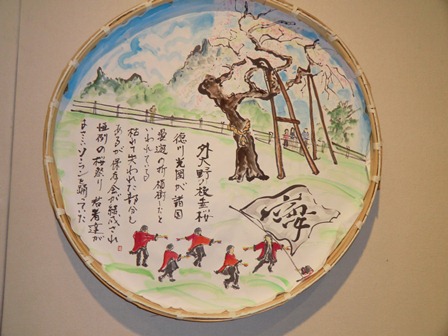 外大野の枝垂桜
徳川光圀が諸国
の折 植樹したと
いわれてる
枯れて失われた部分も
あるが保存会が結成され
恒例の桜祭り 若者達が
ソーランを踊っていた